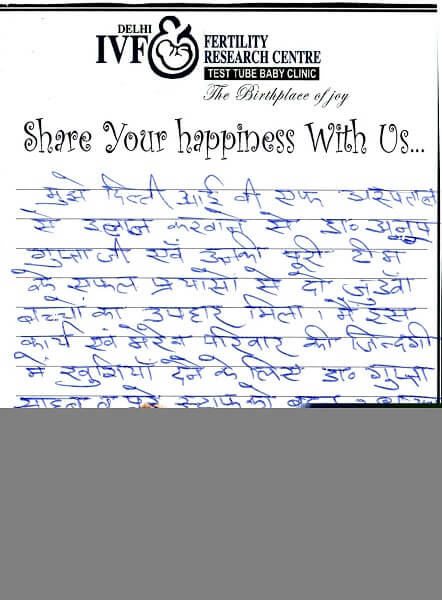 DELHI
IVF
FERTILITY
RESEARCH CENTRE
TEST TUBE BABY CLINIC
The Birthplace of joy
Share Your happiness With Us...
मुझे दिल्ली आई वी एफ अस्पताल
से इलाज करवाने से डा० अनुप
गुप्ता जी एवं उनकी पूरी टीम
के सफल प्रयासो से दो जुड़वाँ
बच्चों का उपहार मिला। मैं इस
कार्य एवं मेरे परिवार की जिन्दगी
में खुशियाँ देने के लिए डा० गुप्ता
साहब व पूरे स्टाफ को